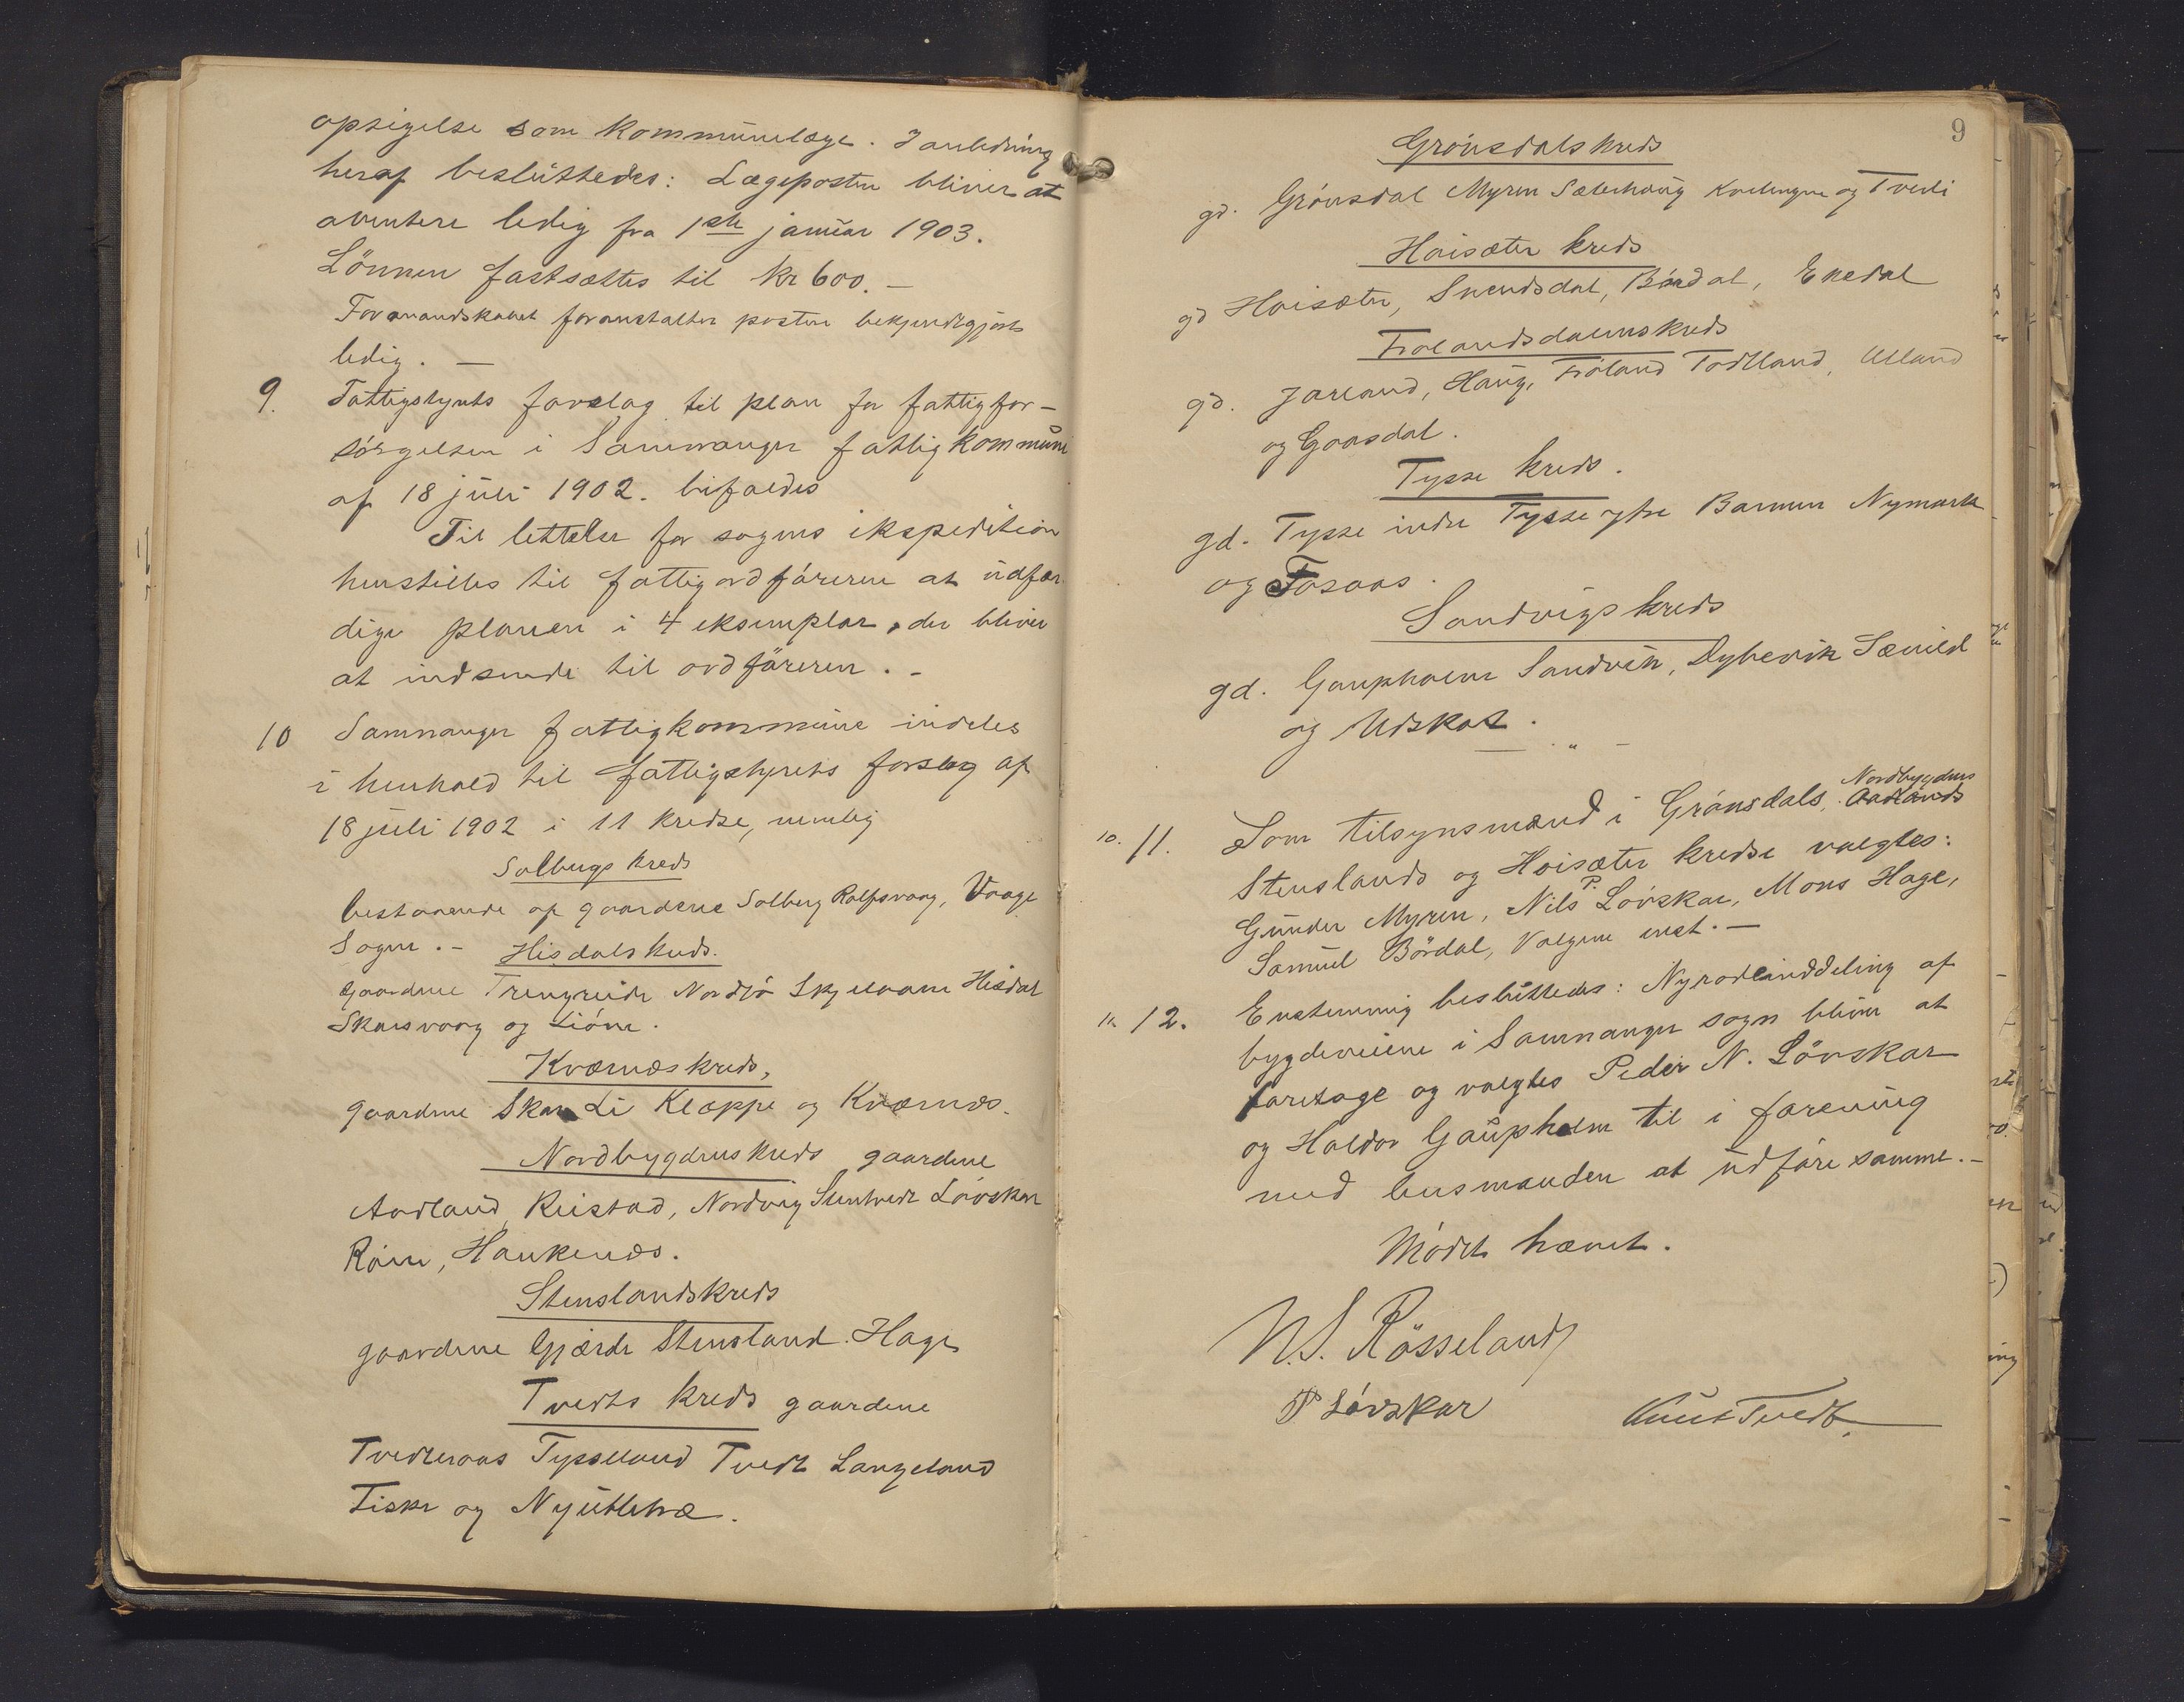 opsigelse som kommunelæge. I anledning
heraf besluttedes: Lægeposten bliver at
avertere ledig fra 1ste januar 1903.
Lönnen fastsættes til kr 600.—
Formandskabet foranstalter posten bekjendtgjort
ledig. —
9. Fattigstyrets forslag til plan for fattigfor-
sörgelsen i Samnanger fattigkommune
af 18 juli 1902. bifaldes
Til lettelse for sagens ekspedition
henstilles til fattigordföreren at udfær-
dige planen i 4 eksemplar, der bliver
at indsende til ordföreren. -
10 Samnanger fattigkommune indeles
i henhold til fattigstyrets forslag af
18 juli 1902 i 11 kredse, nemlig
Solbergs kreds
bestaaende af gaardene Solberg Rolfsvaag, Vaage
Sagen. - Hisdalskreds.
gaardene Trengreide Nordbö Skjelvaane Hisdal
Skarsvaag og Liöne.
Kværnæskreds,
gaardene Skar Li Kleppe og Kværnæs.
Nordbygdenskreds gaardene
Aadland, Reistad, Nordvig Stentvedt Lövskar
Röen, Haukenæs.
Stenslandskreds
gaardene Gjærde Stensland. Hage
Tvedts kreds gaardene
Tvedteraas Tyssland Tvedt Langeland
Fiske og Nyutletræ.
9
Grönsdalskreds
gd. Grönsdal Myren Sæterhaug og Tveili
Höisæter kreds
gd Höisæter, Svendsdal, Bördal, Enedal
Frölandsdalenskreds
gd. Jarland, Haug, Fröland Tödtland, Ulland
og Gaasdal.
Tysse kreds.
gd. Tysse indre Tysse ytre Barmen Nymark
og Fosaas.
Sandvigskreds
gd. Gaupholm Sandvik, Dybevik Sævild
og Udskot.
— . „ —
Nordbygdens
10. 11. Som tilsynsmænd i Grönsdals, Aadlands
Stenslands og Höisæter kredse valgtes:
Gunder Myren, Nils P. Lövskar, Mons Hage,
Samuel Bördal, Valgene enst. —
11. 12. Enstemmig besluttedes: Nyrodeinddeling af
bygdeveiene i Samnanger sogn bliver at
foretage og valgtes Peder N. Lövskar
og Haldor Gaupholm til i forening
med lensmanden at udföre samme. -
Mödet hævet.
N. S. Rösseland
P Lövskar Knut Tvedt.